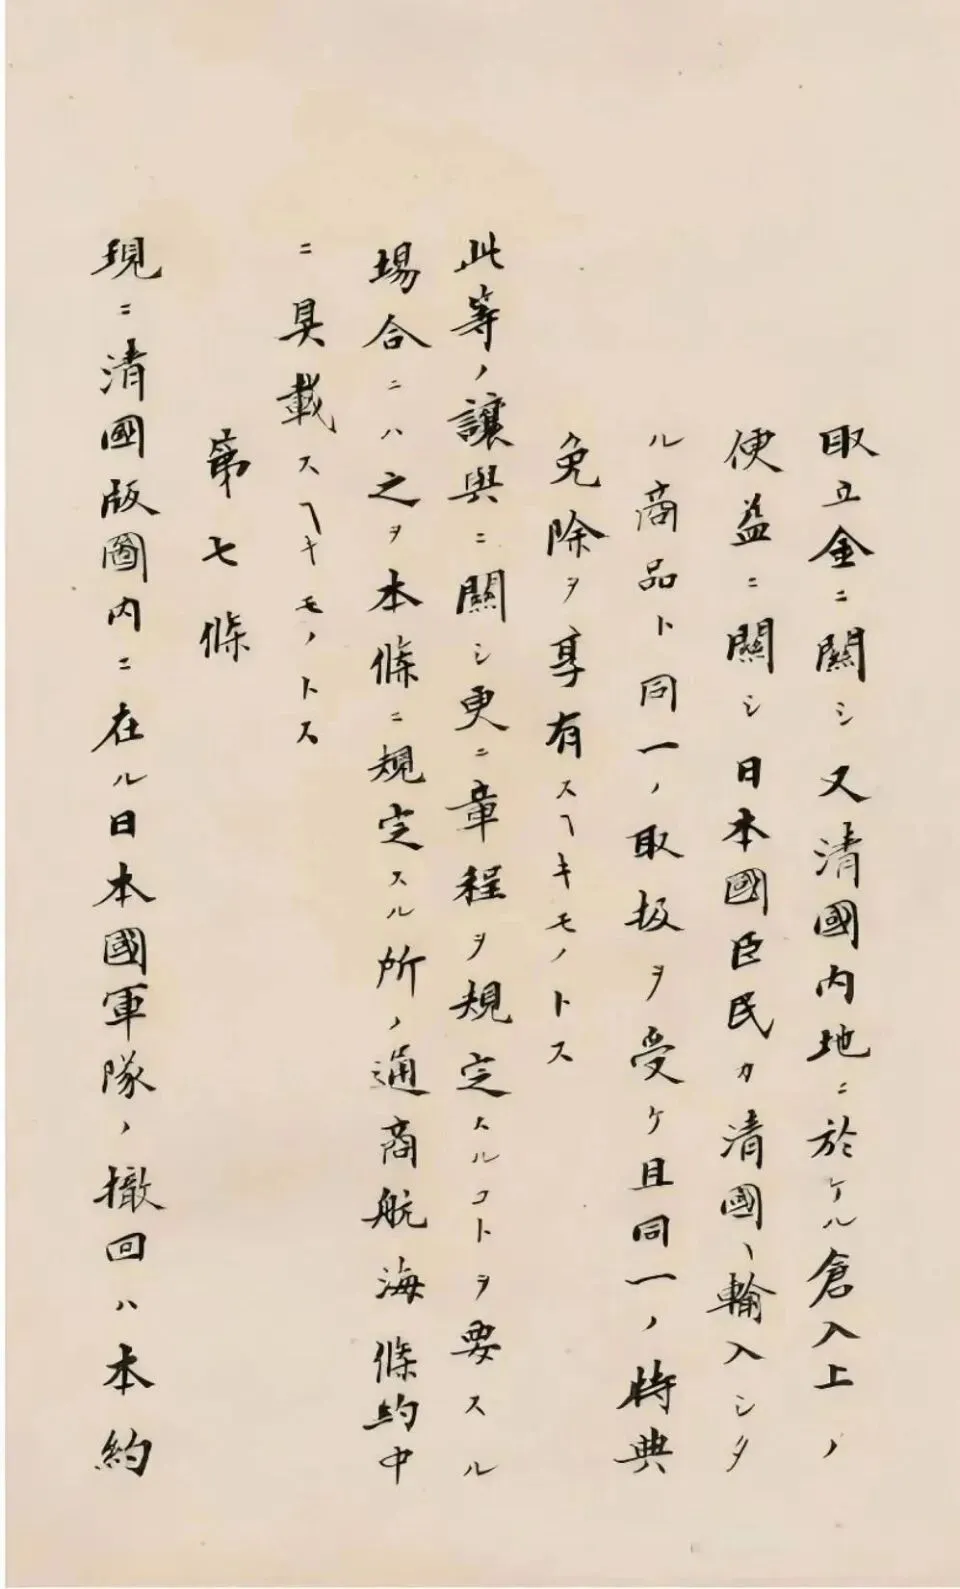 取立金ニ關シ又清國内地ニ於ケル倉入上ノ
便益ニ關シ日本國臣民カ清國ヘ輸入シタ
ル商品ト同一ノ取扱ヲ受ケ且同一ノ特典
免除ヲ享有スヘキモノトス
此等ノ讓與ニ關シ更ニ章程ヲ規定スルコトヲ要スル
場合ニハ之ヲ本條ニ規定スル所ノ通商航海條約中
ニ具載スヘキモノトス
第七條
現ニ清國版圖内ニ在ル日本國軍隊ノ撤回ハ本約